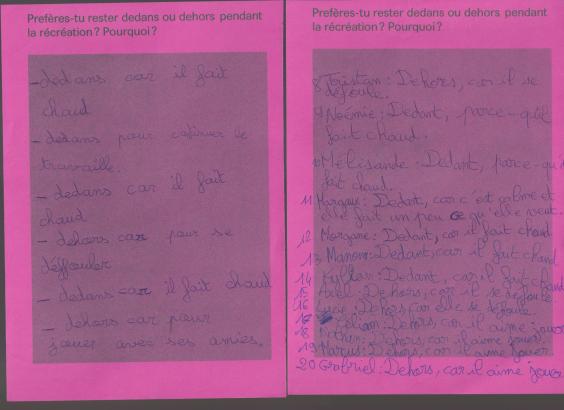 Prefères-tu rester dedans ou dehors pendant
la récréation? Pourquoi?
- dedans car il fait
chaud
- dedans pour continuer le
travaille.
- dedans car il fait
chaud
- dehors car pour se
défouler
- dedans car il fait chaud
- dehors car pour
jouer avec ses amies.
Prefères-tu rester dedans ou dehors pendant
la récréation? Pourquoi?
8 Tristan: Dehors, car il se
défoule.
9 Noémie: Dedant, parce-qu'il
fait chaud.
10 Mélisande: Dedant, parce-qu'il
fait chaud.
11 Margaux: Dedant, car c'est calme et
elle fait un peu ce qu'elle veut.
12 Morgane: Dedant, car il fait chaud
13 Manon: Dedant, car il fait chaud
14 Dedant, car il fait chaud
15 Dehors, car il se défoule.
16 Dehors car elle se défoule.
17 Dehors, car il aime jouer
18 Nathan: Dehors, car il aime jouer.
19 Marcus: Dehors, car il aime jouer
20 Gabriel: Dehors, car il aime jouer